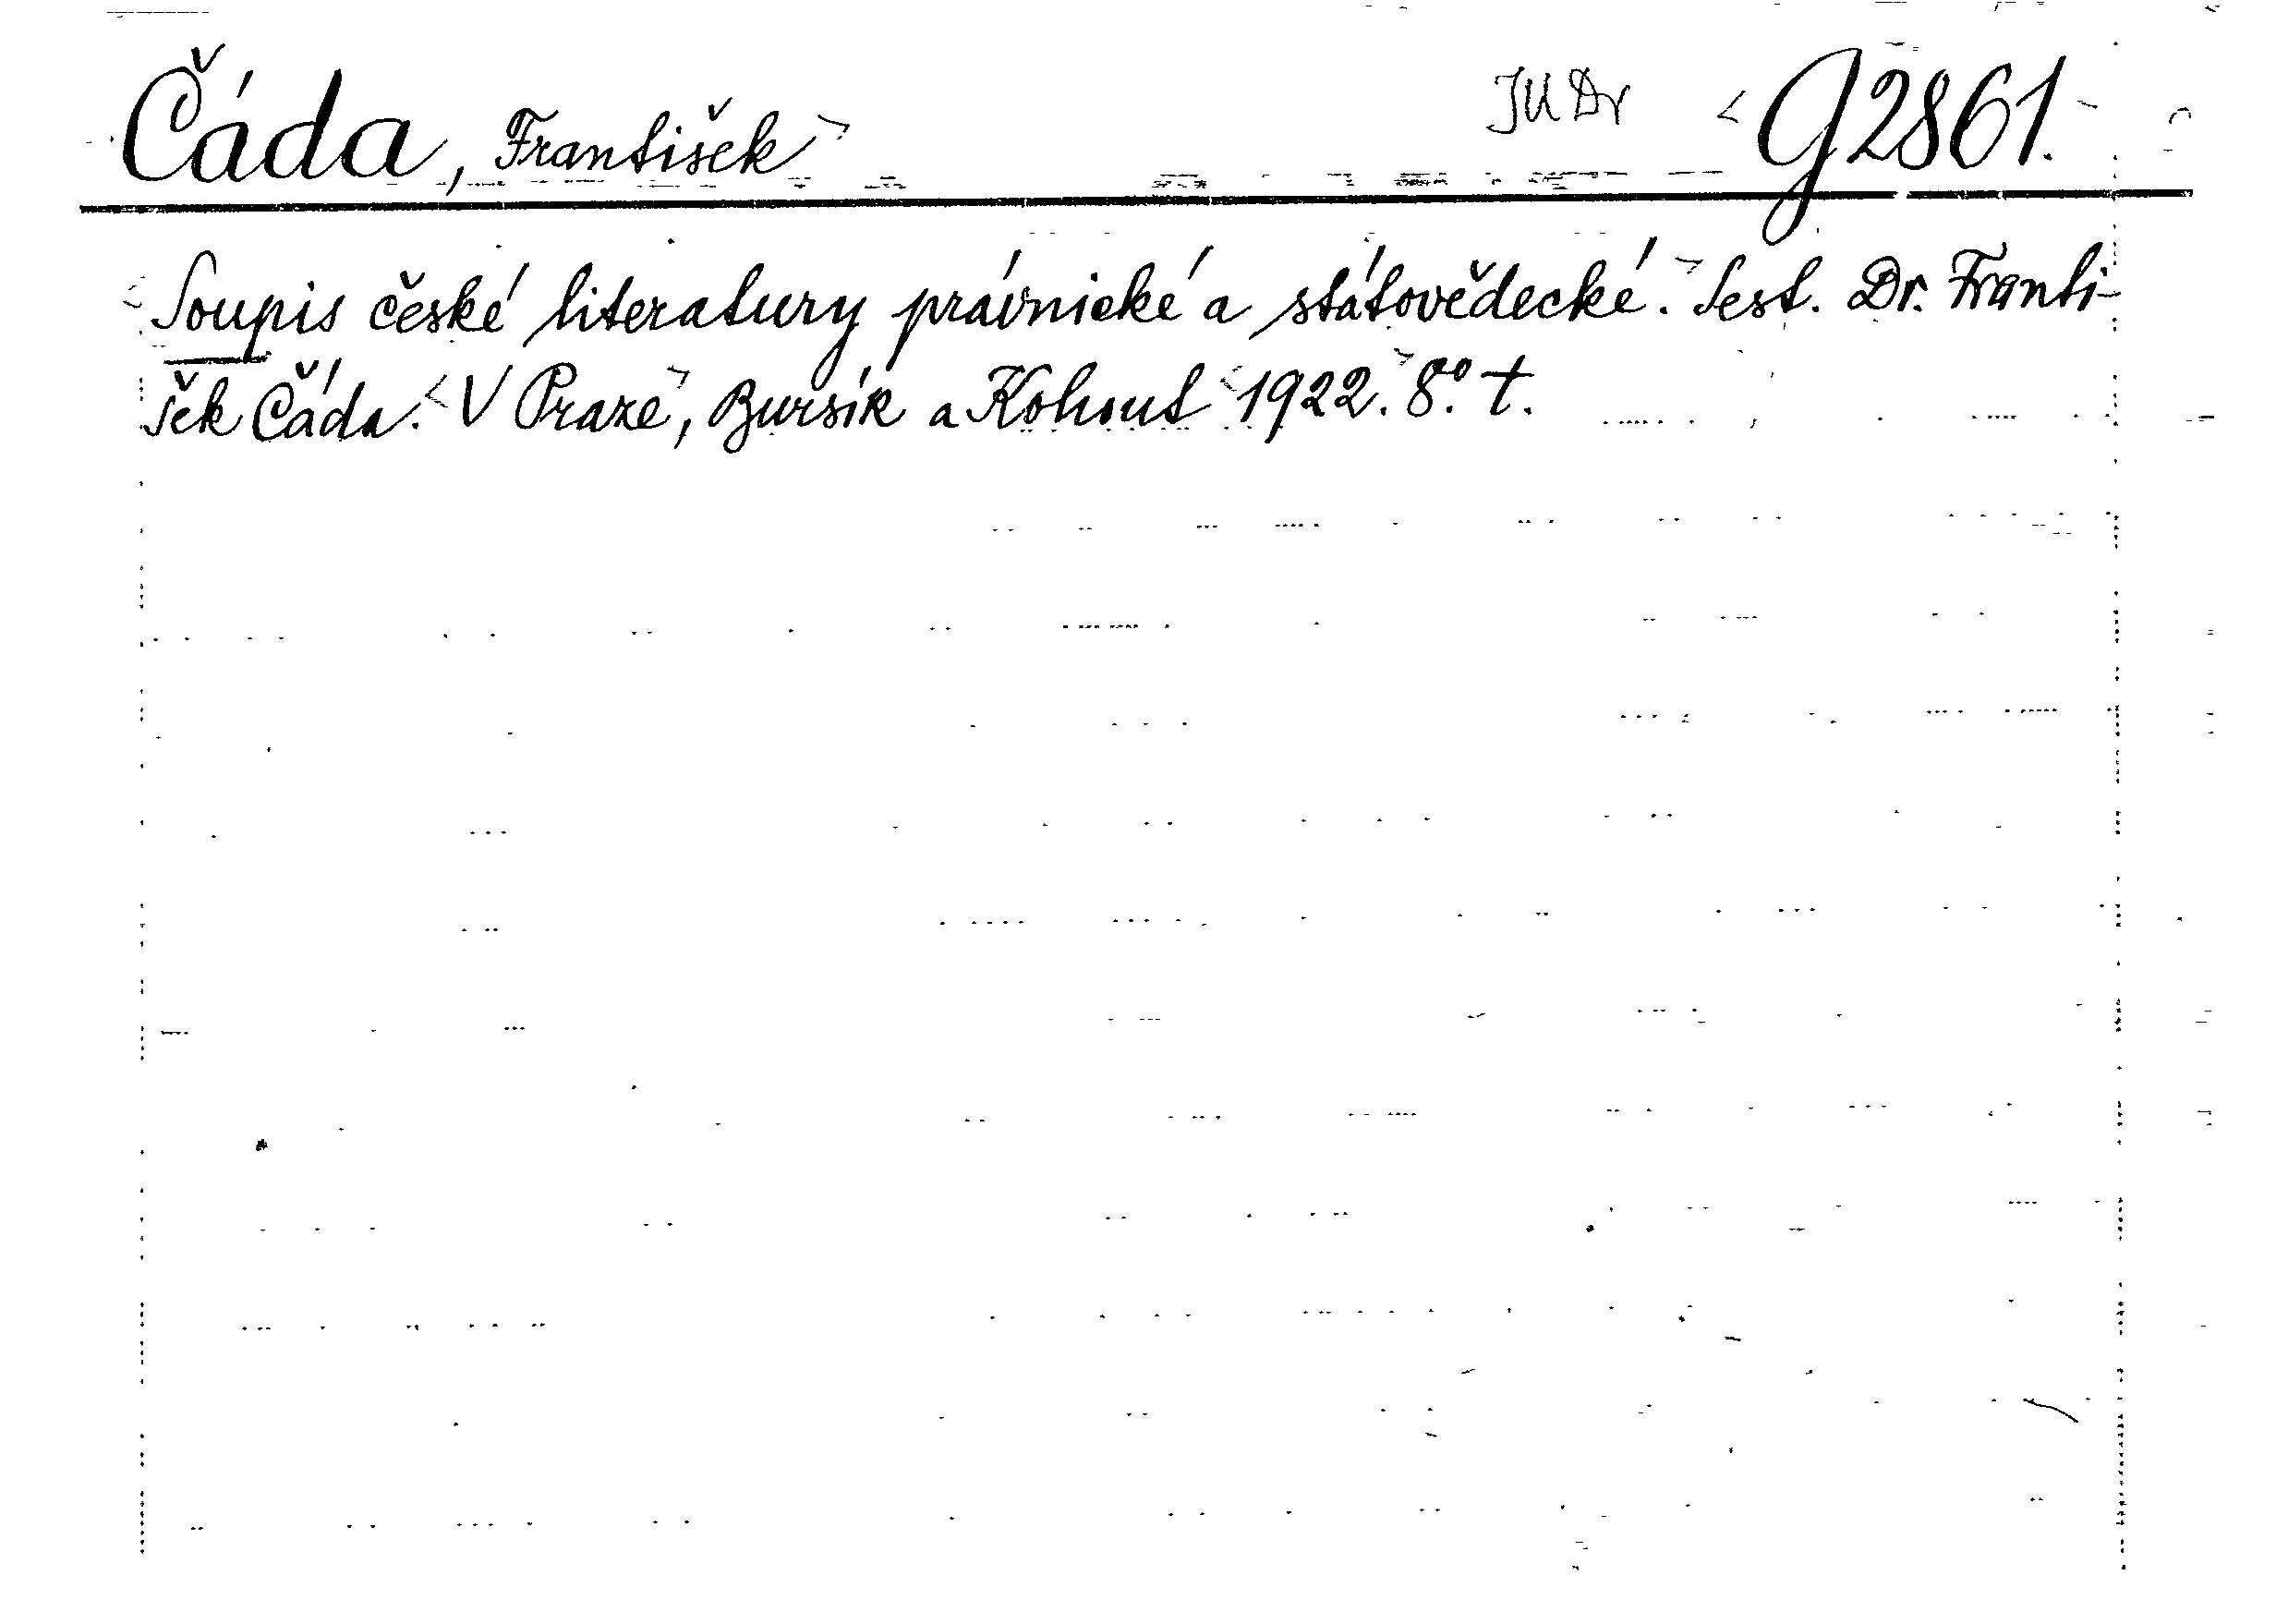 Čáda, František JUDr G2861.
Soupis české literatury právnické a státovědecké. Sest. Dr. Franti-
šek Čáda. V Praze, Bursík a Kohout 1922. 8°. t.